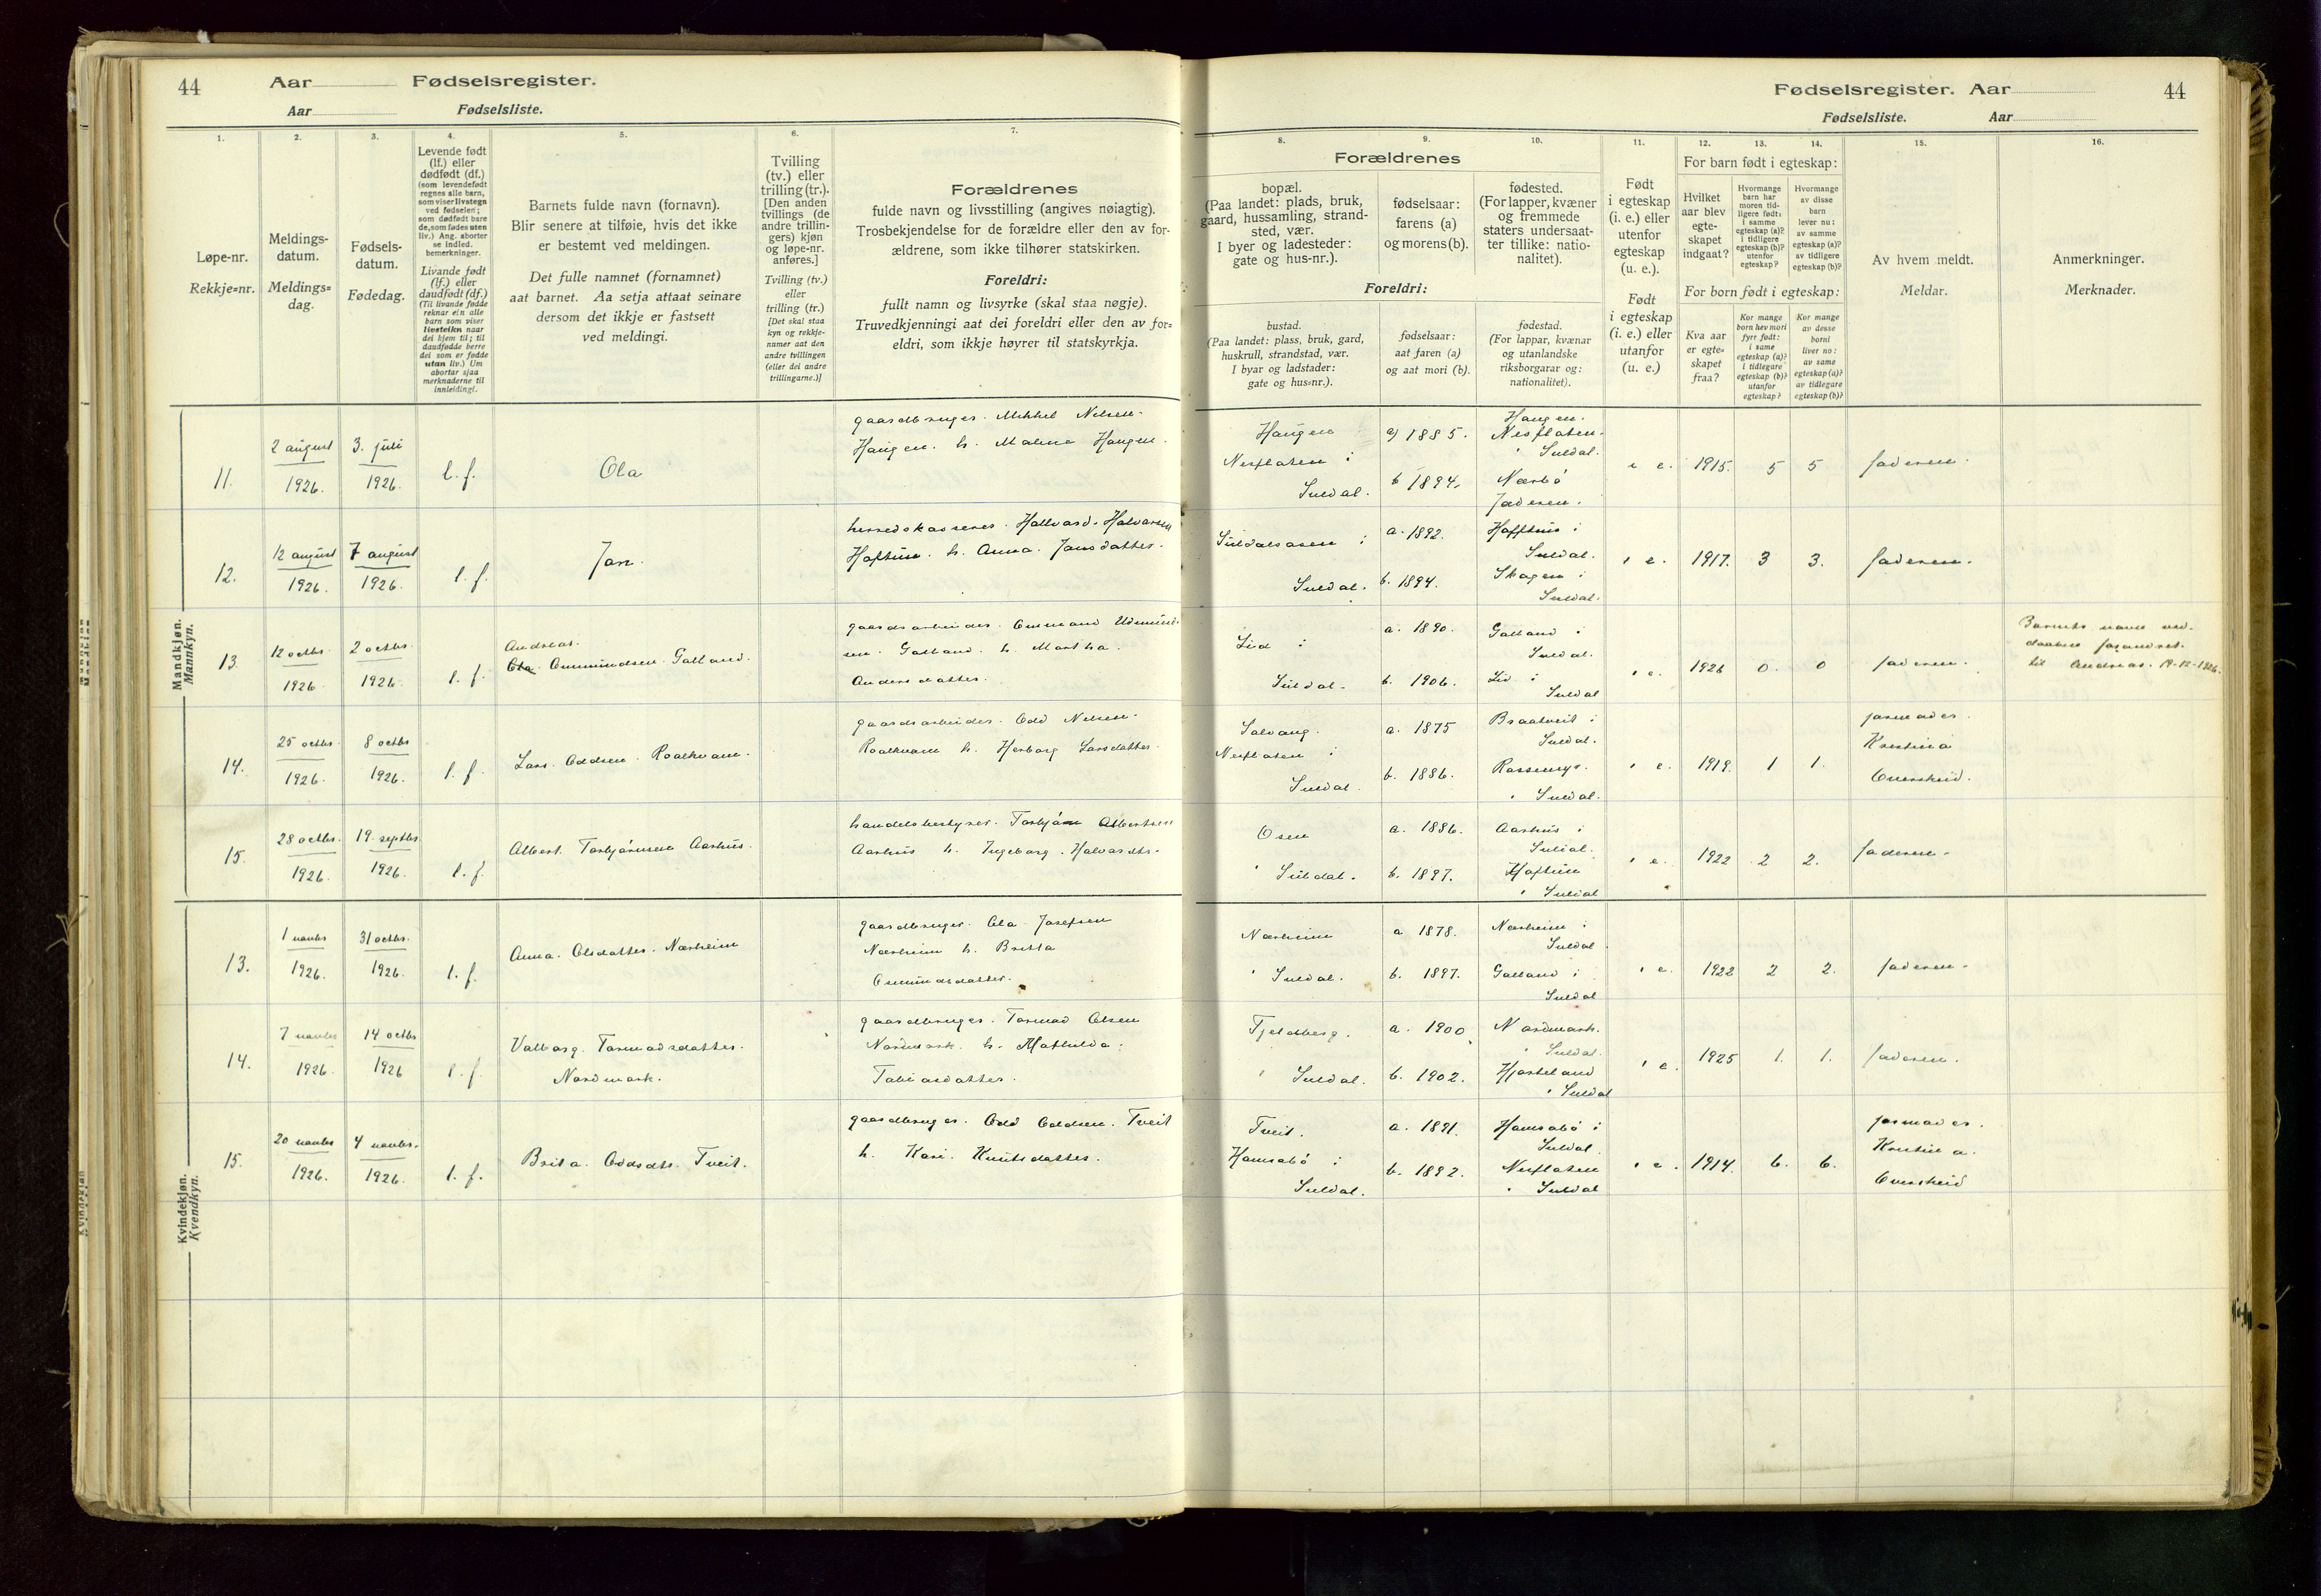 44 Aar Fødselsregister.
Aar Fødselsliste.
Fødselsregister. Aar 44
Fødselsliste. Aar
1. 2. 3. 4. 5. 6. 7. 8. 9. 10. 11. 12. 13. 14. 15. 16.
Løpe-nr.
Rekkje=nr.
Meldings-
datum.
Meldings=
dag.
Fødsels-
datum.
Fødedag.
Levende født
(lf.) eller
dødfødt (df.)
(som levendefødt
regnes alle barn,
som viser livstegn
ved fødselen;
som dødfødt bare
de, som fødes uten
liv.) Ang. aborter
se indled.
bemerkninger.
Livande født
(lf.) eller
daudfødt (df.)
(Til livande fødde
reknar ein alle
barn som viser
livsteikn naar
dei kjem til; til
daudfødde berre
dei som er fødde
utan liv.) Um
abortar sjaa
merknaderne til
innleidingi.
Barnets fulde navn (fornavn).
Blir senere at tilføie, hvis det ikke
er bestemt ved meldingen.
Det fulle namnet (fornamnet)
aat barnet. Aa setja attaat seinare
dersom det ikkje er fastsett
ved meldingi.
Tvilling
(tv.) eller
trilling (tr.).
[Den anden
tvillings (de
andre trillin-
gers) kjøn
og løpe-nr.
anføres.]
Tvilling (tv.)
eller
trilling (tr.)
[Det skal staa
kyn og rekkje-
numer aat den
andre tvillingen
(eller dei andre
trillingarne.)]
Forældrenes
fulde navn og livsstilling (angives nøiagtig).
Trosbekjendelse for de forældre eller den av for-
ældrene, som ikke tilhører statskirken.
Foreldri:
fullt namn og livsyrke (skal staa nøgje).
Truvedkjenningi aat dei foreldri eller den av for=
eldri, som ikkje høyrer til statskyrkja.
Forældrenes
bopæl.
(Paa landet: plads, bruk,
gaard, hussamling, strand-
sted, vær.
I byer og ladesteder:
gate og hus-nr.).
fødselsaar:
farens (a)
og morens (b).
fødested.
(For lapper, kvæner
og fremmede
staters undersaat-
ter tillike: natio-
nalitet).
Foreldri:
bustad.
(Paa landet: plass, bruk, gard,
huskrull, strandstad, vær.
I byar og ladstader:
gate og hus=nr.).
fødselsaar:
aat faren (a)
og aat mori (b).
fødestad.
(For lappar, kvænar
og utanlandske
riksborgarar og:
nationalitet).
Født
i egteskap
(i. e.) eller
utenfor
egteskap
(u. e.).
Født
i egteskap
(i. e.) eller
utanfor
(u. e.)
For barn født i egteskap:
Hvilket
aar blev
egte-
skapet
indgaat?
Hvormange
barn har
moren tid-
ligere født:
i samme
egteskap (a)?
i tidligere
egteskap (b)?
utenfor
egteskap?
Hvormange
av disse
barn
lever nu:
av samme
egteskap (a)?
av tidligere
egteskap (b)?
For born født i egteskap:
Kva aar
er egte=
skapet
fraa?
Kor mange
born hev mori
fyrr født:
i same
egteskap (a)?
i tidlegare
egteskap (b)?
utanfor
egteskap?
Kor mange
av desse
borni
liver no:
av same
egteskap (a)?
av tidlegare
egteskap (b)?
Av hvem meldt.
Meldar.
Anmerkninger.
Merknader.
Mandkjøn.
Mannkyn.
11. 2 august 1926. 3. juli 1926. l. f. Ola
gaardbruger. Mikkel Nelsen
Haugen. h. Malena Haugen.
Haugen
Nesflaten i
Suldal.
a) 1885.
b 1894.
Haugen.
Nesflaten.
i Suldal.
Nærbø
Jæderen.
i e. 1915. 5 5 faderen.
12. 12 august 1926. 7 august 1926. l. f. Jan.
herredskasserer. Hallvard. Halvorsen
Hoftun. h. Anna. Jansdatter.
Suldalsosen i
Suldal.
a. 1892.
b. 1894.
Suldal.
Skogen i
Suldal.
i e. 1917. 3 3. faderen.
13. 12 octbr. 1926. 2 octbr. 1926. l. f.
Andreas.
Ola Ommundsen Galland.
gaardsarbeider. Ommund Udmund-
sen. Galland. h. Martha.
Andersdatter.
Lid i
Suldal.
a. 1890.
b. 1906.
Galland i
Suldal.
Lid i
Suldal
i e. 1926 0. 0 faderen.
Barnets navn ved
daaben forandret
til Andreas. 19-12-1926.
14. 25 octbr. 1926. 8 octbr 1926. l. f. Lars. Oddsen. Roalkvam.
gaardsarbeider. Odd Nelsen
Roalkvam h. Herborg Larsdatter.
Solvang.
Nesflaten i
Suldal.
a. 1875
b. 1886.
Braatveit i
Suldal.
i Suldal.
i e. 1919. 1 1.
jormoder.
Kristina
Overskeid.
15. 28 octbr. 1926. 19. septbr. 1926. l. f. Albert. Torbjørnsen Aarhus.
handelsbestyrer. Torbjørn Albertsen
Aarhus h. Ingeborg. Halvardtr.
Osen
i Suldal.
a. 1886.
b. 1897.
Aarhus i
Suldal.
Hoftun
i Suldal
i e. 1922 2 2. faderen.
Kvindekjøn.
Kvendkyn.
13. 1 novbr 1926. 31 octbr. 1926. l. f. Anna. Olsdatter. Nærheim
gaardbruger. Ola Josefsen
Nærheim h. Britta
Ommundsdatter.
Nærheim
i Suldal.
a 1878.
b. 1897.
Nærheim i
Suldal
Galland i
Suldal
i e. 1922 2 2. faderen.
14. 7 novbr 1926. 14 octbr 1926 l. f.
Valborg. Tormodsdatter.
Nordmark.
gaardbruger. Tormod Olsen
Nordmark. h. Mathilda.
Tobiasdatter.
Tjeldberg.
i Suldal.
a. 1900
b. 1902.
Nordmark.
i Suldal.
Hjorteland
i Suldal
i e. 1925 1. 1. faderen.
15. 20 novbr 1926. 4 novbr. 1926. l. f. Brita. Oddsdtr. Tveit.
gaardbruger. Odd Oddsen. Tveit
h. Kari. Knutsdatter.
Tveit.
Hamrabø i
Suldal.
a. 1891.
b. 1892.
Hamrabø i
Suldal.
Nesflaten
i Suldal
i e. 1914. 6. 6.
jormoder.
Kristina.
Overskeid